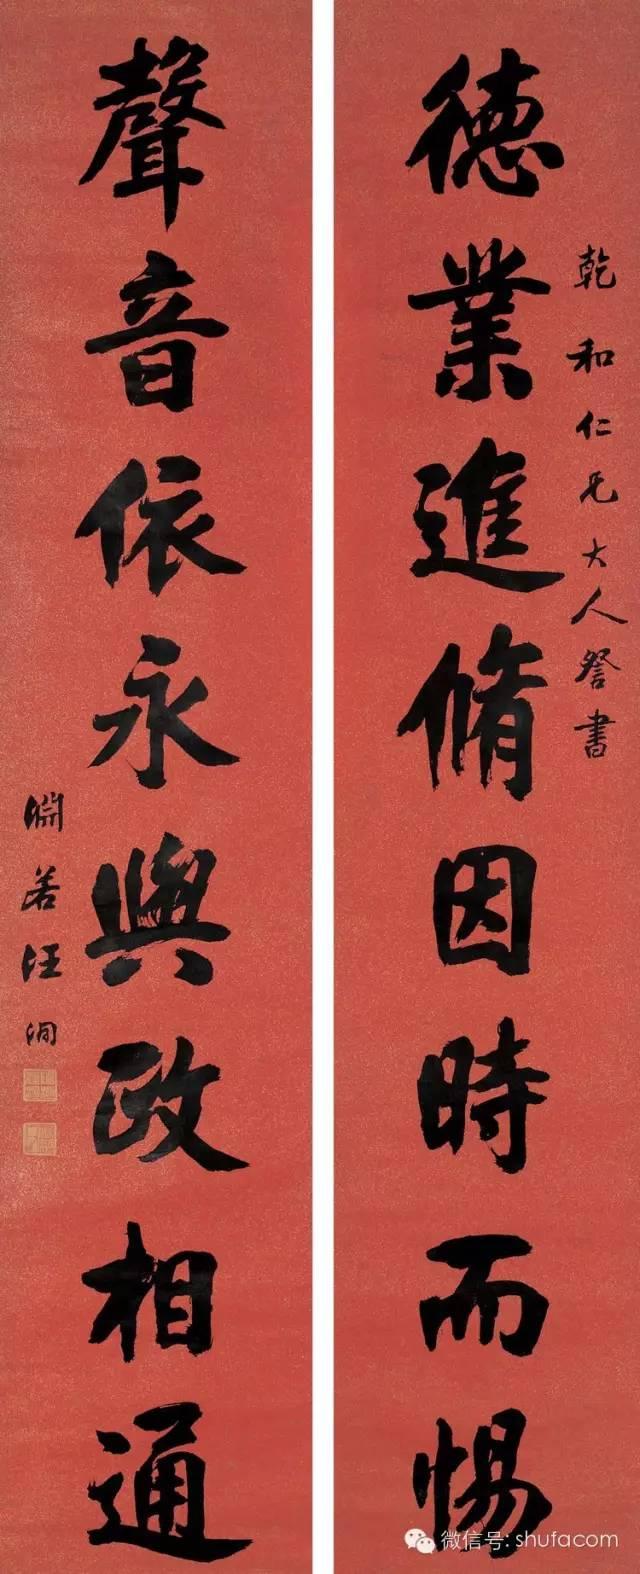 乾和仁兄大人詧書
德業進脩因時而惕
聲音依永與政相通
淵若汪洵
微信号: shufacom